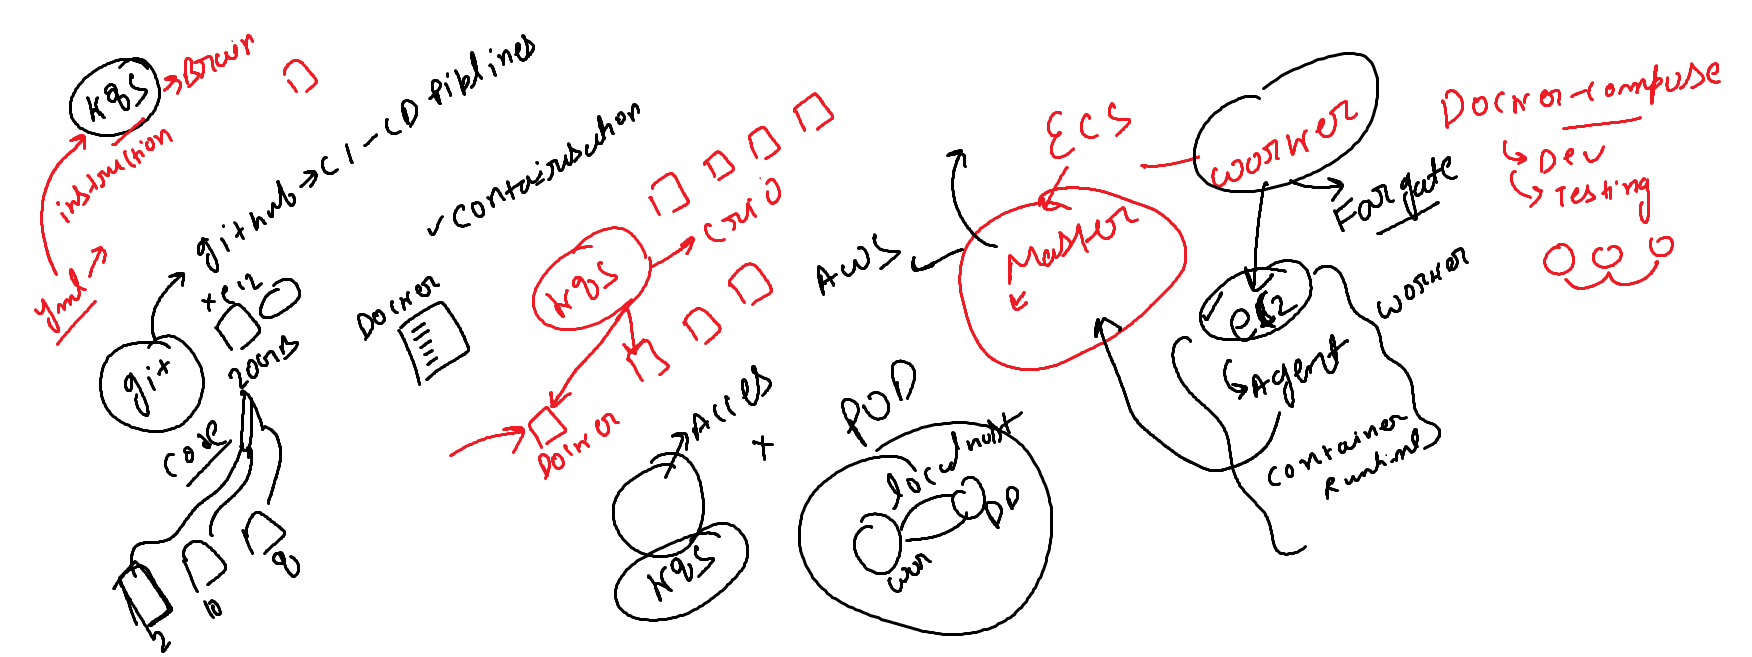 K8S
Brain
instruction
yml
github
CI-CD Piplines
git
x e12
200GB
code
2
10
8
Docker
K8S
crio
Docker
Acces
x
K8S
POD
localhost
DD
ECS
Master
AWS
worker
Fargate
ec2
Agent
worker
container
Runtime
Docker-compose
Dev
Testing